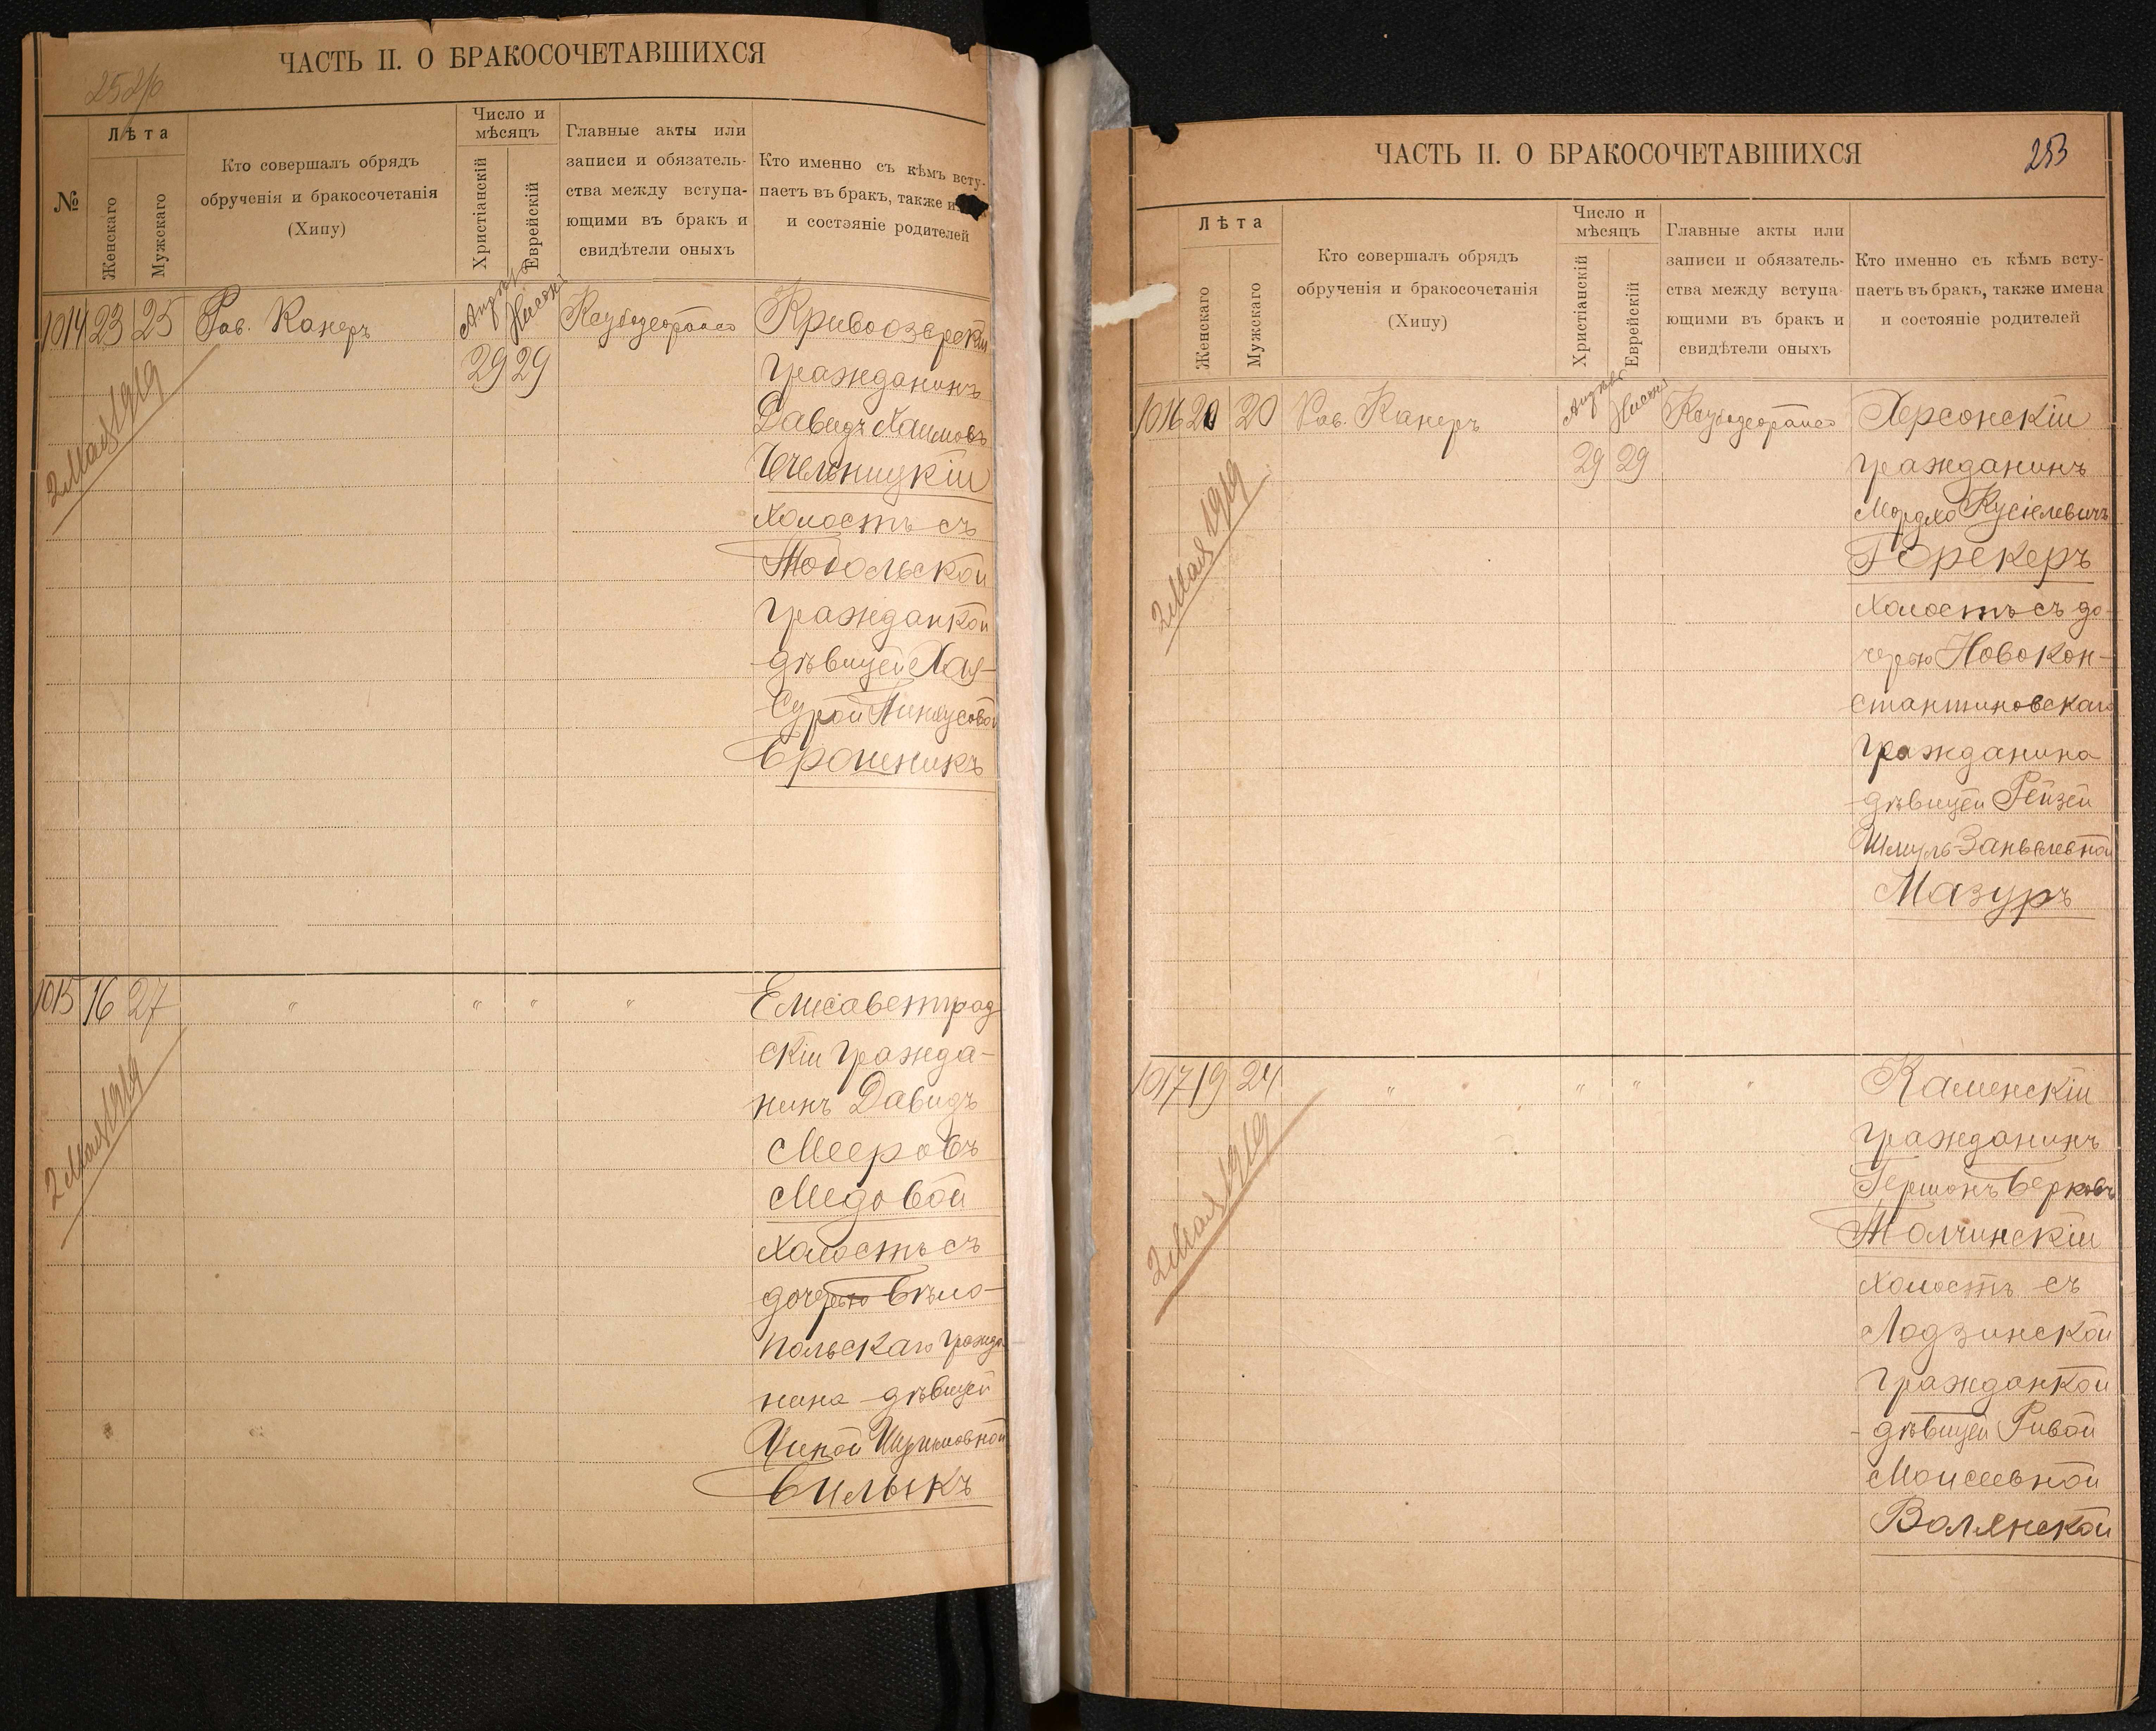 ЧАСТЬ II. О БРАКОСОЧЕТАВШИХСЯ
№
Лѣта
Женскаго
Мужскаго
Кто совершалъ обрядъ
обрученія и бракосочетанія
(Хипу)
Число и
мѣсяцъ
Христіанскій
Еврейскій
Главные акты или
записи и обязатель-
ства между вступа-
ющими въ бракъ и
свидѣтели оныхъ
Кто именно съ кѣмъ всту-
паетъ въ бракъ, также
и состояніе родителей
1014 23 25 Рав. Канеръ
29 29
Кривоозерскій
гражданинъ
Давидъ Хаимовъ
Чельницкій
холостъ съ
Тобольской
гражданкой
дѣвицей Хая-
Сурой Пинхусовой
Брошникъ
2 Мая 1919
1015 16 27 " " " "
Елисаветград
скій гражда-
нинъ Давидъ
Мееровъ
Медовой
холостъ съ
дочерью Бѣло-
польскаго гражда
нина дѣвицей
Билыкъ
2 Мая 1919
ЧАСТЬ II. О БРАКОСОЧЕТАВШИХСЯ
253
Лѣта
Женскаго
Мужскаго
Кто совершалъ обрядъ
обрученія и бракосочетанія
(Хипу)
Число и
мѣсяцъ
Христіанскій
Еврейскій
Главные акты или
записи и обязатель-
ства между вступа-
ющими въ бракъ и
свидѣтели оныхъ
Кто именно съ кѣмъ всту-
паетъ въ бракъ, также имена
и состояніе родителей
1016 20 20 Рав. Канеръ
29 29
Херсонскій
гражданинъ
Мордко Кусіелевичъ
Герекеръ
холостъ съ до-
черью Новокон-
стантиновскаго
гражданина
дѣвицей Рейзей
Шмуль-Занвелевной
Мазуръ
2 Мая 1919
1017 19 24 " " " "
Каменскій
гражданинъ
Гершонъ Берковъ
Толчинскій
холостъ съ
Лодзинской
гражданкой
дѣвицей Ривой
Моисеевной
Волянской
2 Мая 1919